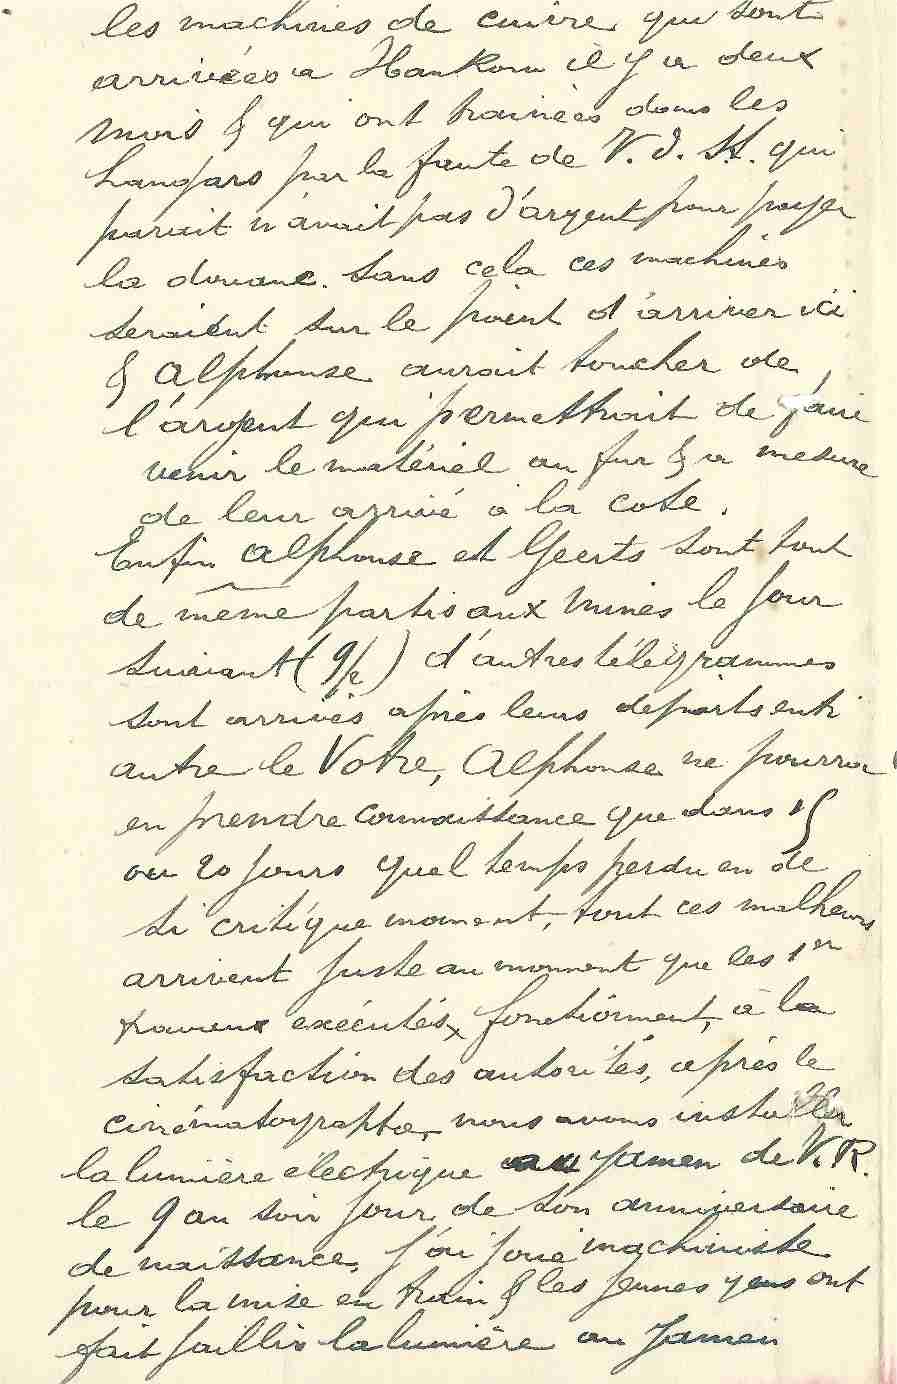 les machines de cuivre qui sont
arrivées a Hankow il y a deux
mois & qui ont trainées dans les
hangars par la faute de V. d. H. qui
parait n'avait pas d'argent pour payer
la douane. Sans cela ces machines
seraient sur le point d'arriver ici
& Alphonse aurait toucher de
l'argent qui permettrait de faire
venir le matériel au fur & a mesure
de leur arrivé à la cote.
Enfin Alphonse et Geerts sont tout
de même partis aux mines le jour
suivant (9/2) d'autres télégrammes
sont arrivés après leurs departs entr
autre le Votre, Alphonse ne pourra
en prendre connaissance que dans 15
ou 20 jours quel temps perdu en de
si critique moment, tout ces malheurs
arrivent juste au moment que les 1er
travaux exécutés, fonctionnent, à la
satisfaction des autorités, après le
cinématographe, nous avons installer
la lumière électrique au Yamen de V. R.
le 9 au soir jour de son anniversaire
de naissance, j'ai joué machiniste
pour la mise en train & les jeunes gens ont
fait jaillir la lumière au Yamen